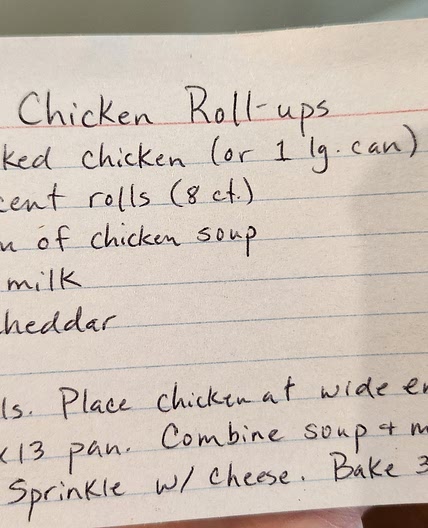 Chicken Roll-ups
ked chicken (or 1 lg. can)
cent rolls (8 ct.)
m of chicken soup
milk
cheddar
ls. Place chicken at wide en
x13 pan. Combine soup + m
Sprinkle w/ cheese. Bake 3